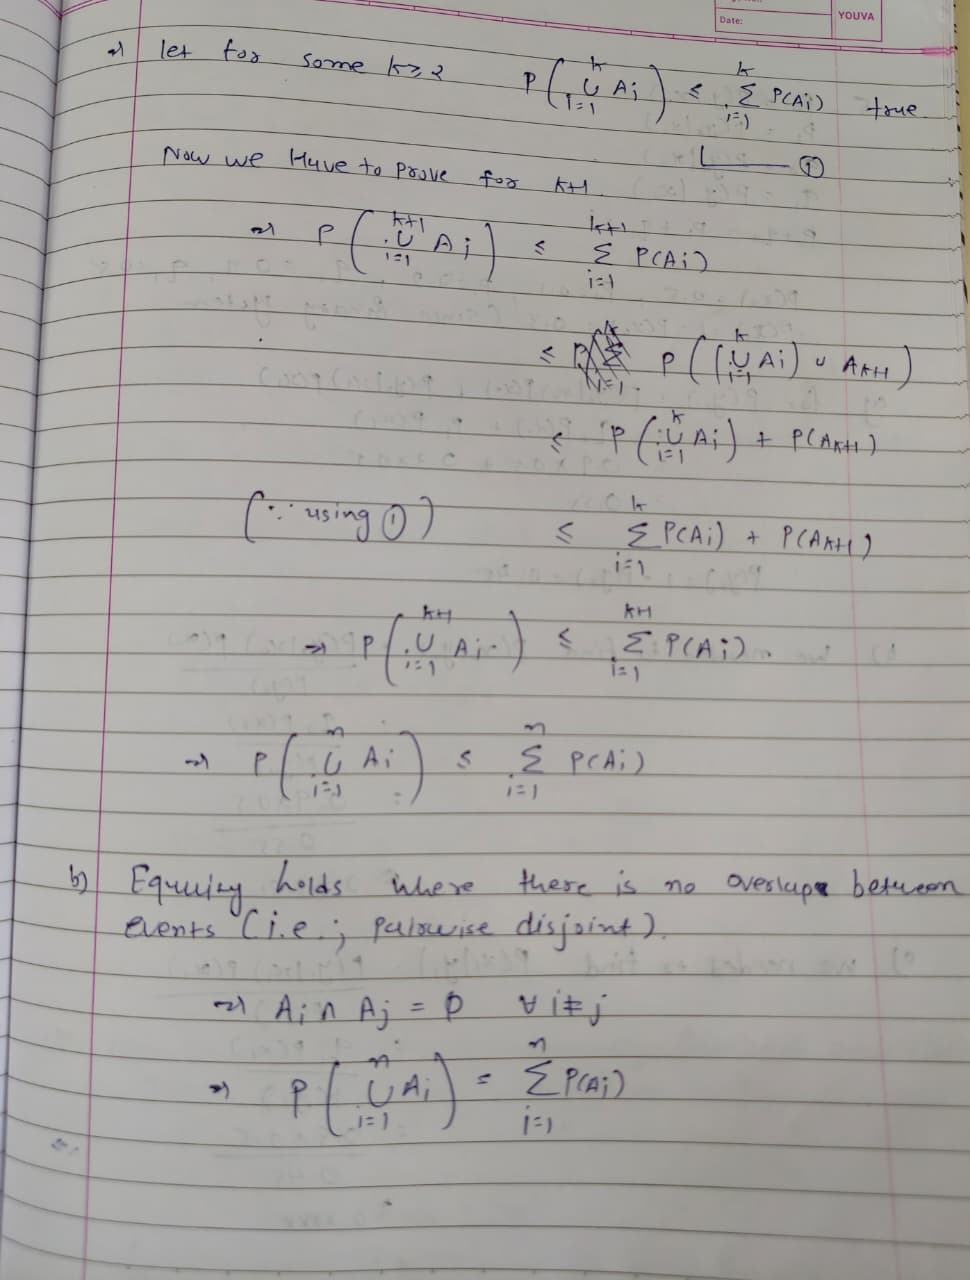 Date:
YOUVA
⇒ let for some k ≥ 2 P(∪_{i=1}^{k} Ai) ≤ Σ_{i=1}^{k} P(Ai) true.
Now we Have to prove for k+1. ①
⇒ P(∪_{i=1}^{k+1} Ai) ≤ Σ_{i=1}^{k+1} P(Ai)
≤ P((∪_{i=1}^{k} Ai) ∪ Ak+1)
≤ P(∪_{i=1}^{k} Ai) + P(Ak+1)
(∵ using ①) ≤ Σ_{i=1}^{k} P(Ai) + P(Ak+1)
⇒ P(∪_{i=1}^{k+1} Ai) ≤ Σ_{i=1}^{k+1} P(Ai).
⇒ P(∪_{i=1}^{n} Ai) ≤ Σ_{i=1}^{n} P(Ai)
b) holds where there is no overlap between
events (i.e.; pairwise disjoint).
⇒ Ai ∩ Aj = ϕ ∀ i≠j
⇒ P(∪_{i=1}^{n} Ai) = Σ_{i=1}^{n} P(Ai)